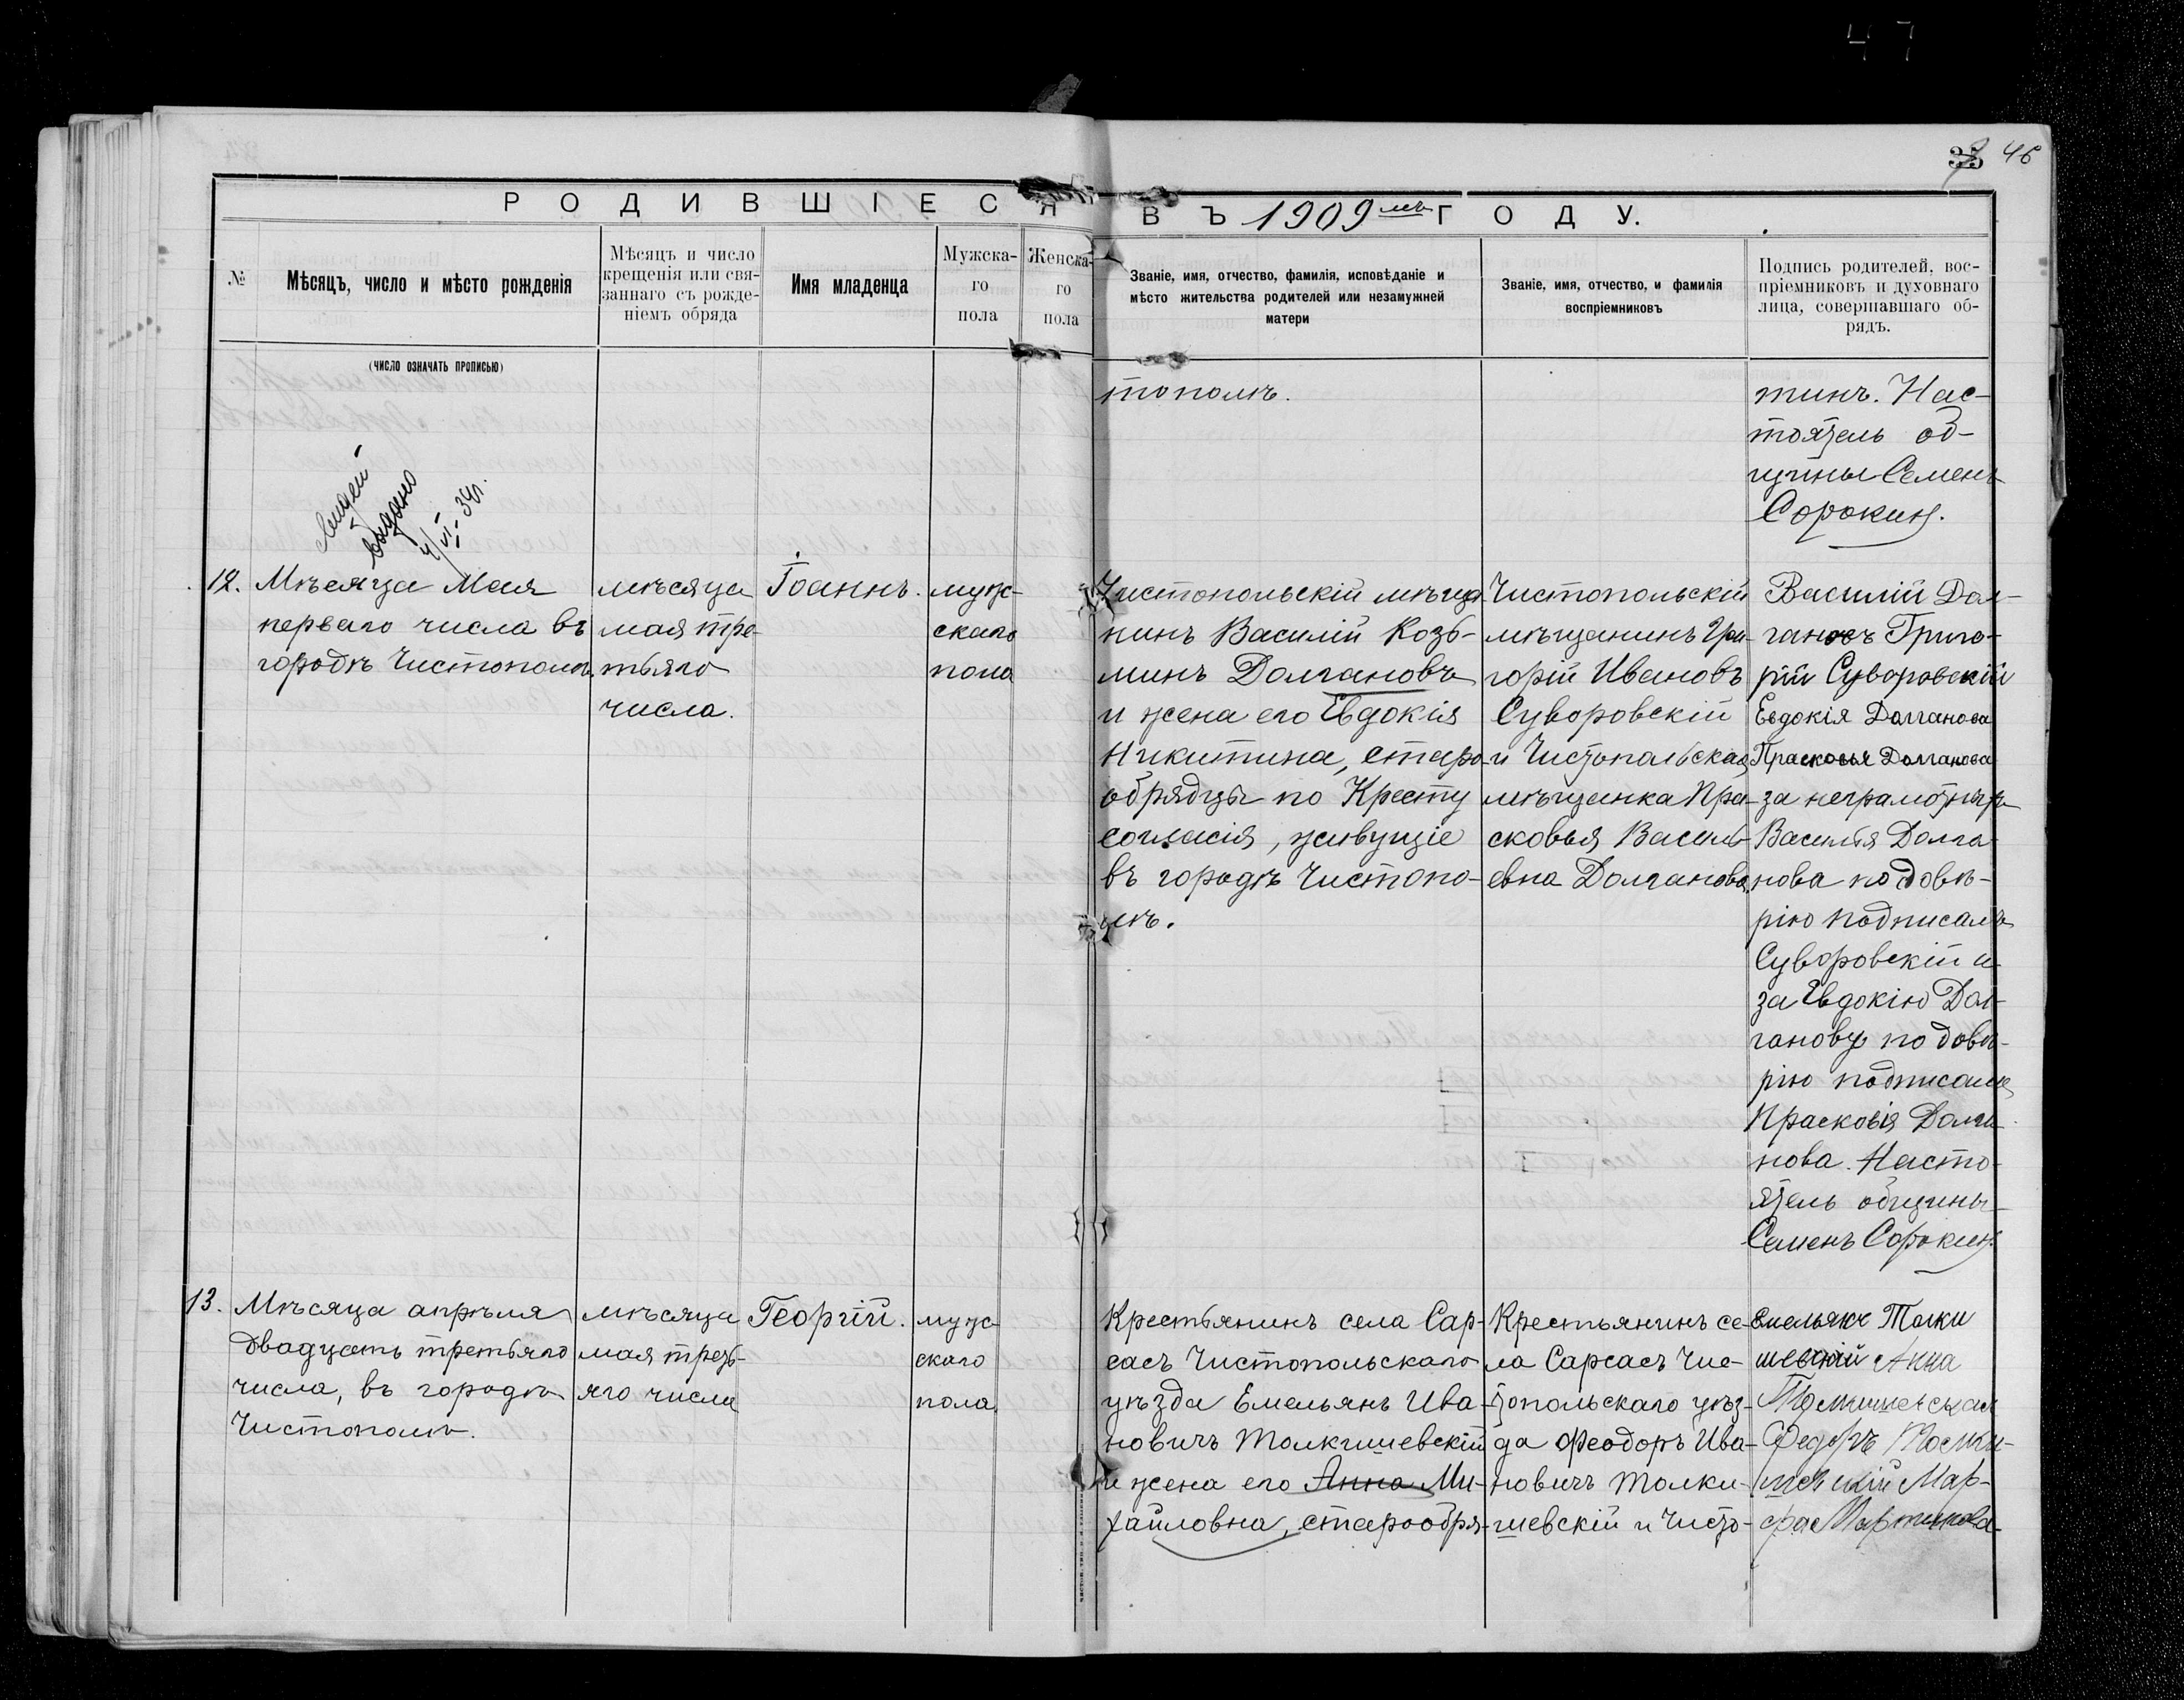 47
46
РОДИВШІЕСЯ ВЪ 1909 мъ ГОДУ.
№
Мѣсяцъ, число и мѣсто рожденія
Мѣсяцъ и число
крещенія или свя-
заннаго съ рожде-
ніемъ обряда
Имя младенца
Мужска-
го
пола
Женска-
го
пола
Званіе, имя, отчество, фамилія, исповѣданіе и
мѣсто жительства родителей или незамужней
матери
Званіе, имя, отчество, и фамилія
воспріемниковъ
Подпись родителей, вос-
пріемниковъ и духовнаго
лица, совершавшаго об-
рядъ.
(число означать прописью)
тополѣ.
тинъ. Нас-
тоятель об-
щины Семенъ
Сорокинъ.
выдано
4/VI-34г.
12.
Мѣсяца Мая
перваго числа въ
городѣ Чистополѣ.
мѣсяца
мая тре-
тьяго
числа.
Іоаннъ.
муж-
скаго
пола
Чистопольскій мѣща-
нинъ Василій Козь-
минъ Долгановъ
и жена его Евдокія
Никитина, старо-
обрядцы по Кресту
согласія, живущіе
въ городѣ Чистопо-
лѣ.
Чистопольскій
мѣщанинъ Гри-
горій Ивановъ
Суворовскій
и Чистопольская
мѣщанка Пра-
сковья Василь-
евна Долганова.
Василій Дол-
гановъ Григо-
рій Суворовскій
Евдокія Долганова
Прасковья Долганова
за неграмотнаго
Василья Долга-
нова по довѣ-
рію подписалъ
Суворовскій и
за Евдокію Дол-
ганову по довѣ-
рію подписала
Прасковія Долга-
нова. Насто-
ятель общины
Семенъ Сорокинъ.
13.
Мѣсяца апрѣля
двадцать третьяго
числа, въ городѣ
Чистополѣ.
мѣсяца
мая треть-
яго числа
Георгій.
муж-
скаго
пола.
Крестьянинъ села Сар-
сасъ Чистопольскаго
уѣзда Емельянъ Ива-
новичъ Толкишевскій
и жена его Анна Ми-
хайловна, старообря-
Крестьянинъ се-
ла Сарсасъ Чис-
топольскаго уѣз-
да Феодоръ Ива-
новичъ Толки-
шевскій и Чисто-
Емельянъ Толки
шевскій Анна
Толкишевская
Федоръ Толки-
шевскій Мар-
фа Мартинова-